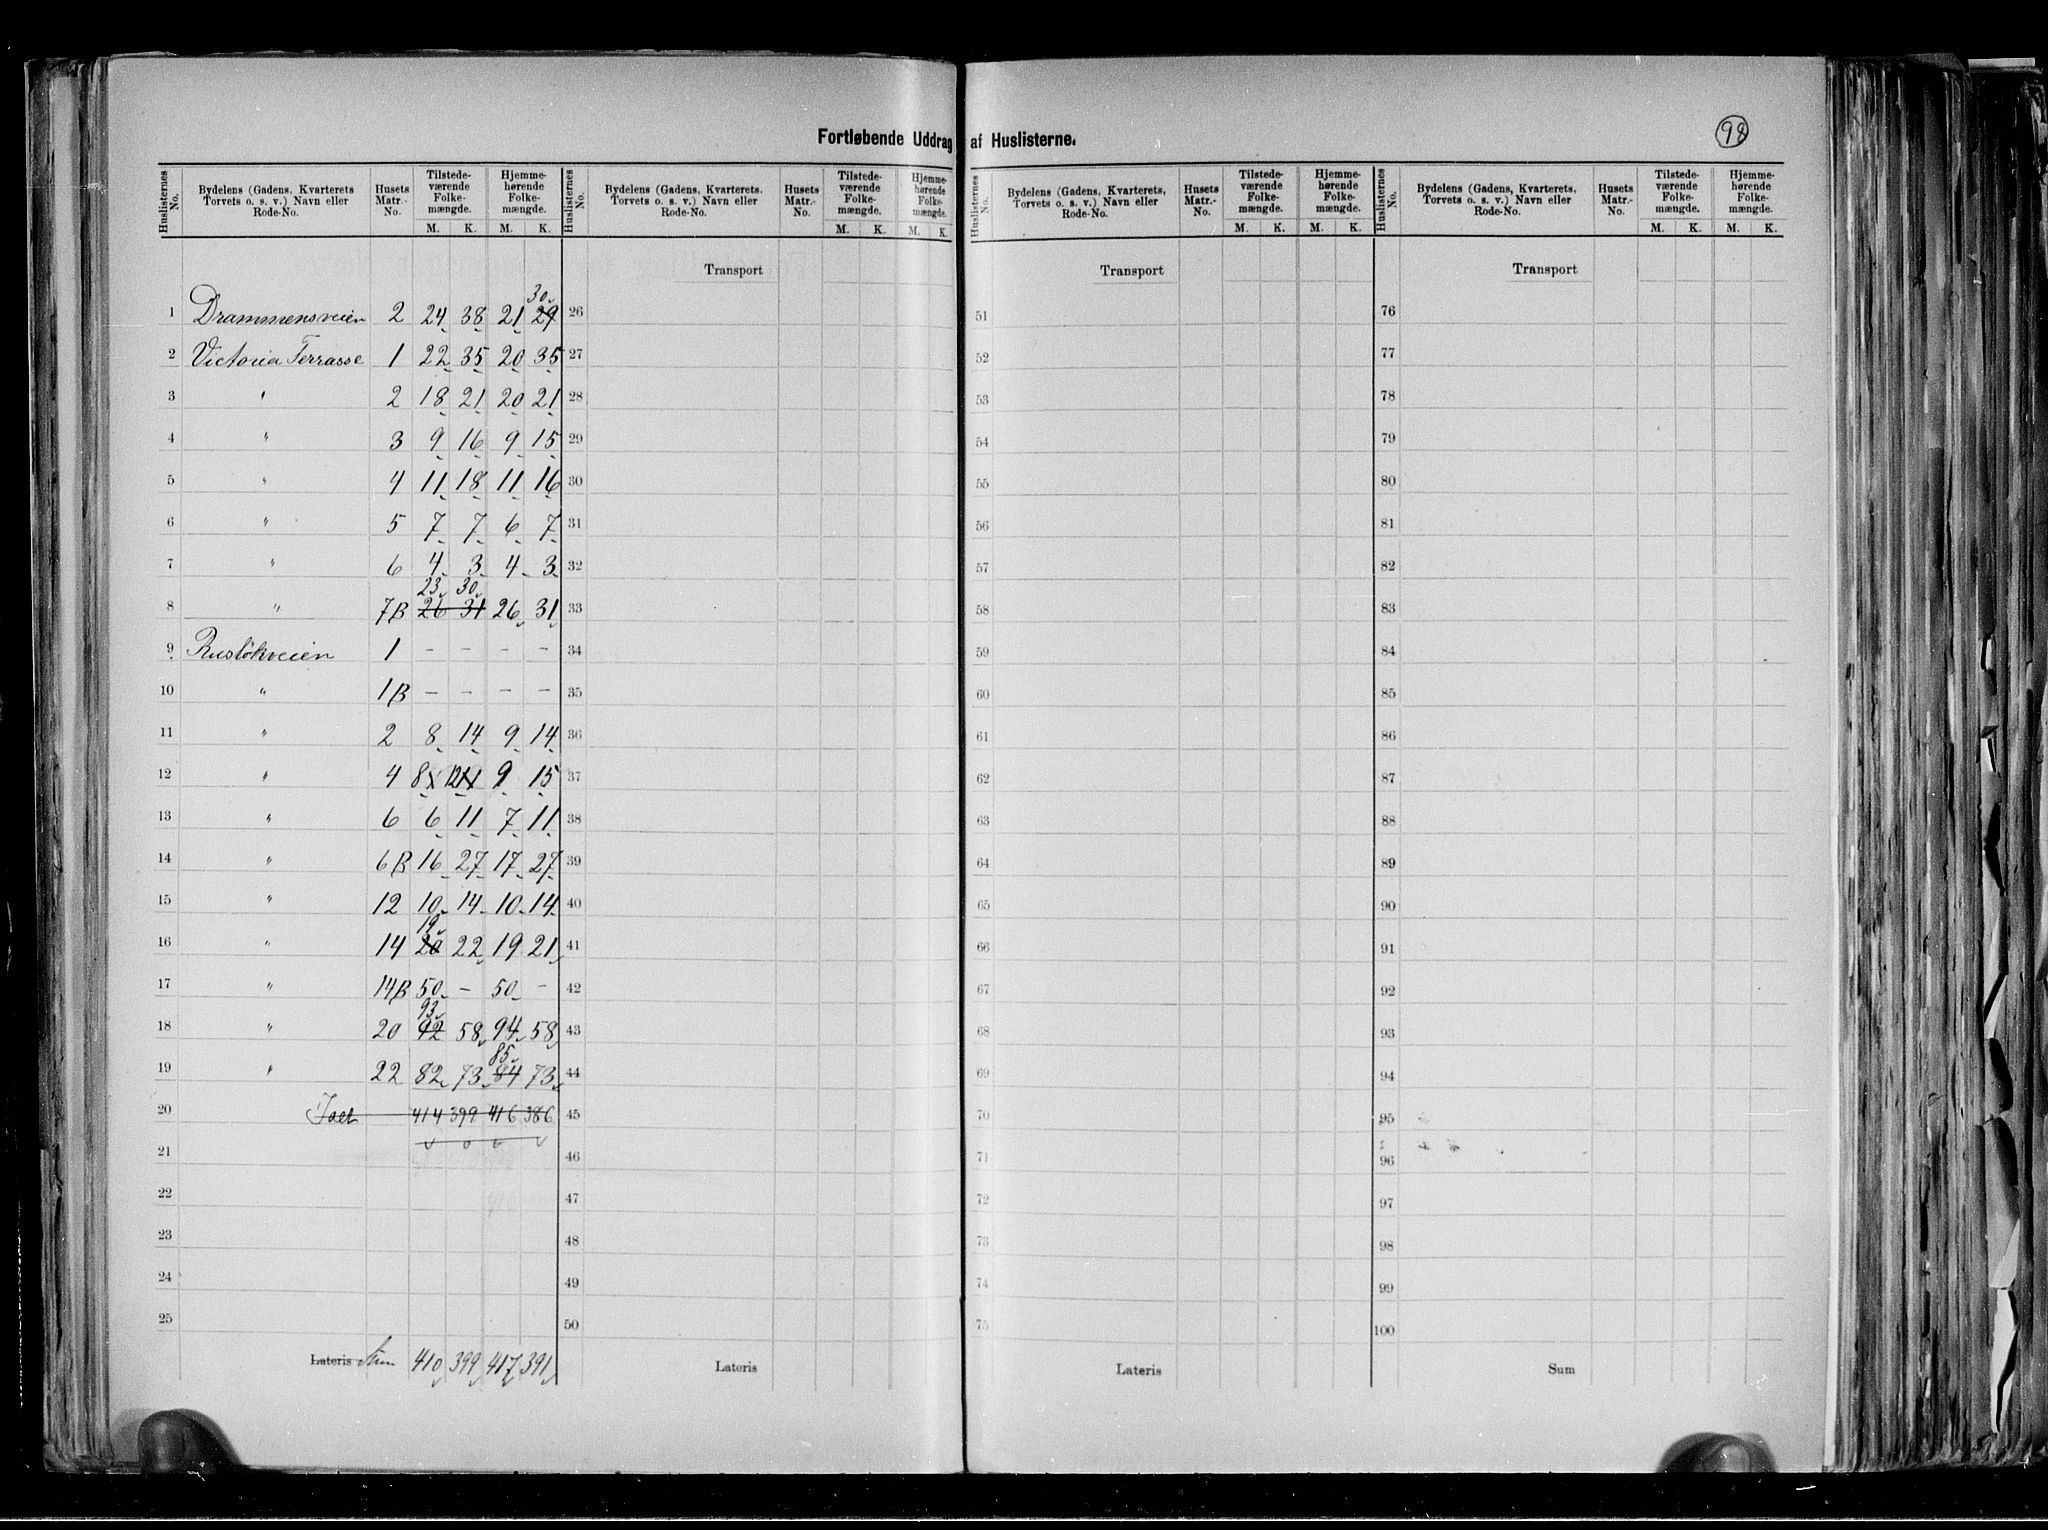 Fortløbende Uddrag af Huslisterne.
98
Huslisternes No. | Bydelens (Gadens, Kvarterets Torvets o. s. v.) Navn eller Rode-No. | Husets Matr.-No. | Tilstedeværende Folkemængde. M. K. | Hjemmehørende Folkemængde. M. K.
Huslisternes No. | Bydelens (Gadens, Kvarterets, Torvets o. s. v.) Navn eller Rode-No. | Husets Matr.-No. | Tilstedeværende Folkemængde. M. K. | Hjemmehørende Folkemængde. M. K.
Huslisternes No. | Bydelens (Gadens, Kvarterets, Torvets o. s. v.) Navn eller Rode-No. | Husets Matr.-No. | Tilstedeværende Folkemængde. M. K. | Hjemmehørende Folkemængde. M. K.
Huslisternes No. | Bydelens (Gadens, Kvarterets, Torvets o. s. v.) Navn eller Rode-No. | Husets Matr.-No. | Tilstedeværende Folkemængde. M. K. | Hjemmehørende Folkemængde. M. K.
Transport Transport Transport
30
1 Drammensveien 2 24 38 21 29 26 51 76
2 Victoria Terrasse 1 22 35 20 35 27 52 77
3 " 2 18 21 20 21 28 53 78
4 " 3 9 16 9 15 29 54 79
5 " 4 11 18 11 16 30 55 80
6 " 5 7 7 6 7 31 56 81
7 " 6 4 3 4 3 32 57 82
23 30
8 " 7B 26 31 26 31 33 58 83
9 Rusløkveien 1 - - - - 34 59 84
10 " 1B - - - - 35 60 85
11 " 2 8 14 9 14 36 61 86
12 " 4 8 12 9 15 37 62 87
13 " 6 6 11 7 11 38 63 88
14 " 6B 16 27 17 27 39 64 89
15 " 12 10 14 10 14 40 65 90
19
16 " 14 20 22 19 21 41 66 91
17 " 14B 50 - 50 - 42 67 92
93
18 " 20 92 58 94 58 43 68 93
85
19 " 22 82 73 84 73 44 69 94
20 Ialt 414 399 416 386 45 70 95
21 46 71 96
22 47 72 97
23 48 73 98
24 49 74 99
25 50 75 100
Lateris Sum 410 399 417 391 Lateris Lateris Sum